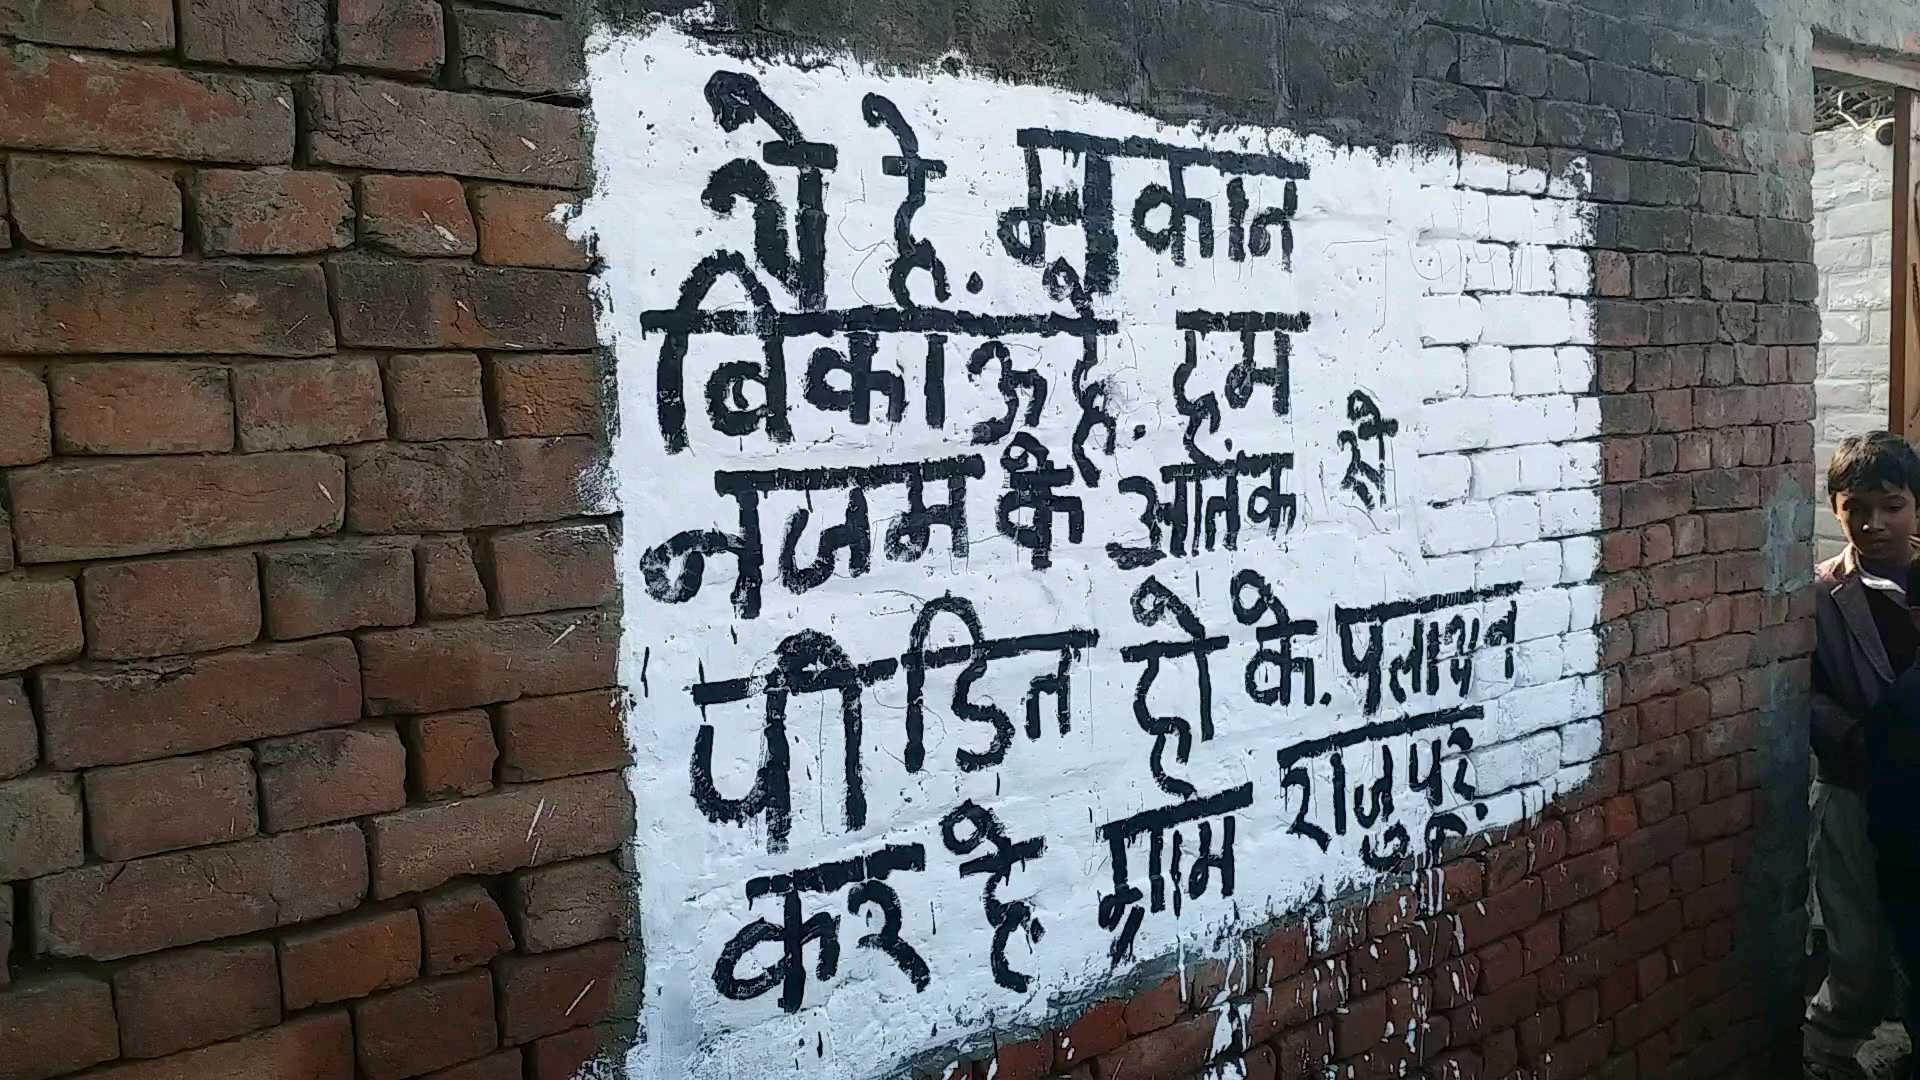 ये है. मकान
बिकाऊ है. हम
नजम के आतंक से
पीडित हो के. पलायन
कर हे ग्राम राजुपुर